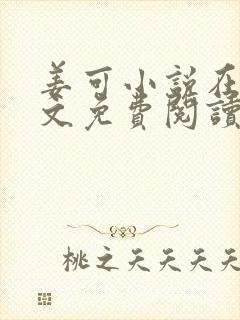 姜可小说在
文免費閱讀
桃之夭夭夭夭